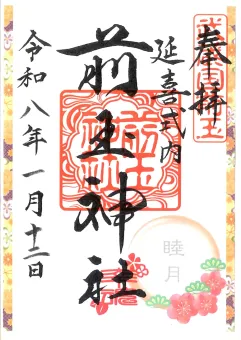 奉拝
延喜式内
前玉神社
令和八年一月十二日
睦月